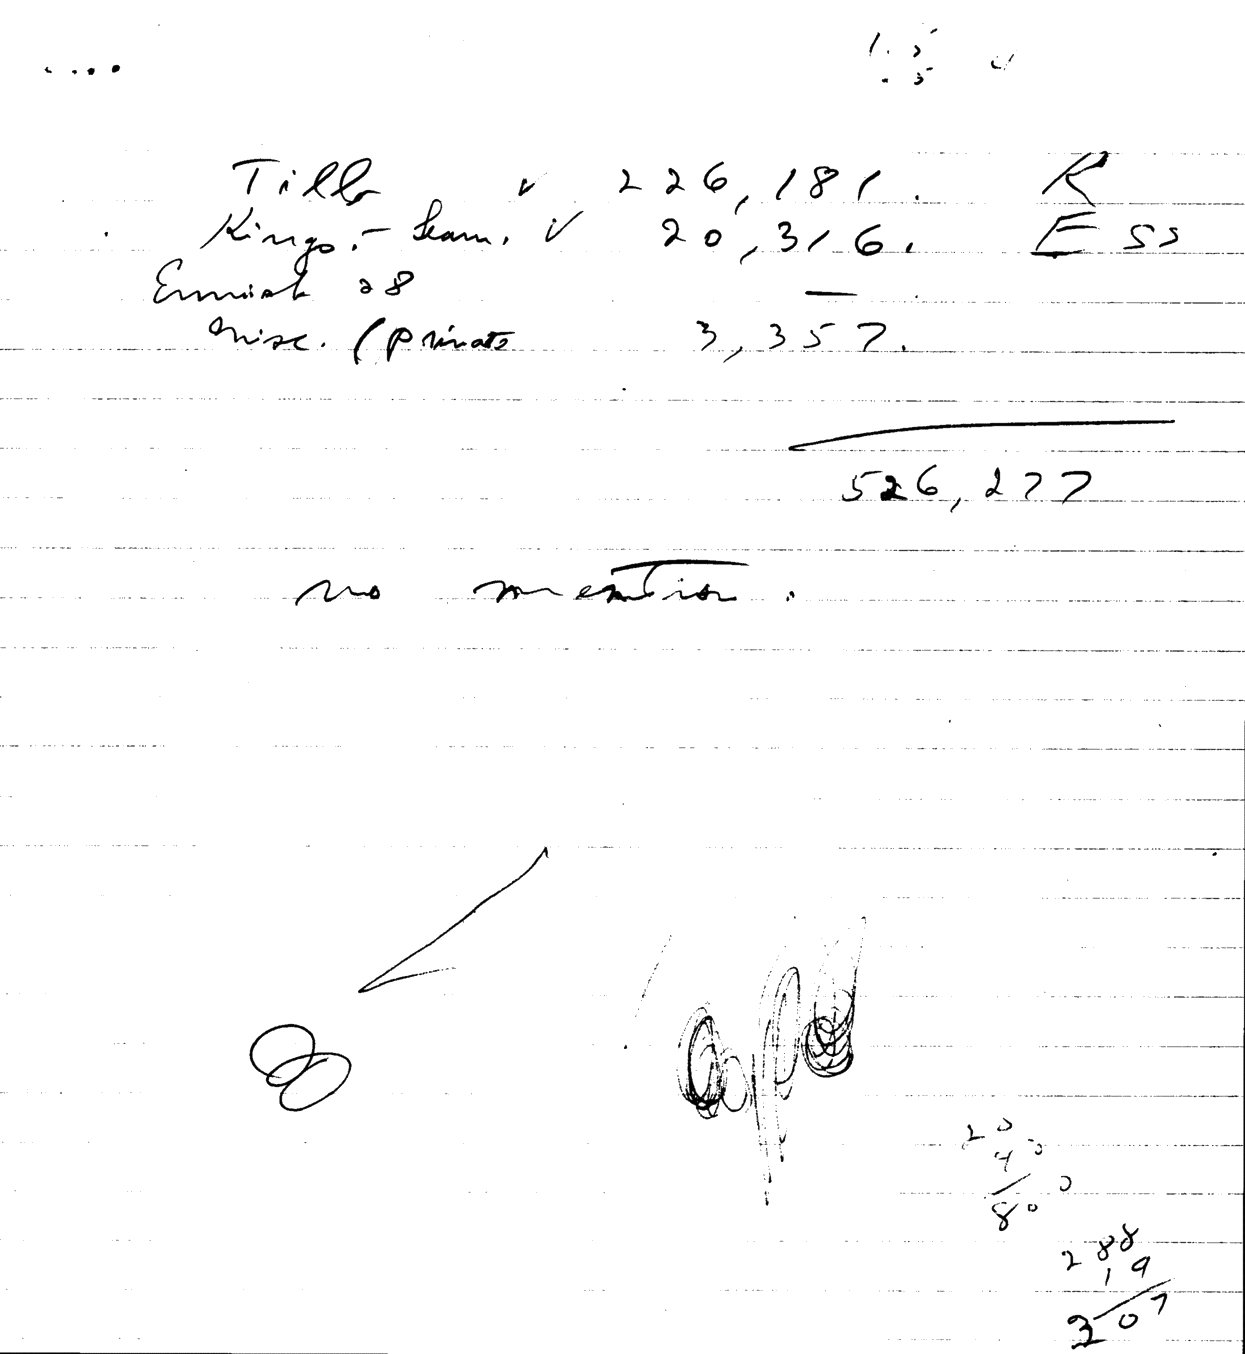 1.5
.5
Tills ✓ 226,181. R
Kings.- Seam. ✓ 20,316. E ss
28 —
Misc. (private 3,357.
526,277
no mention.
20
40
80 0
288
19
307